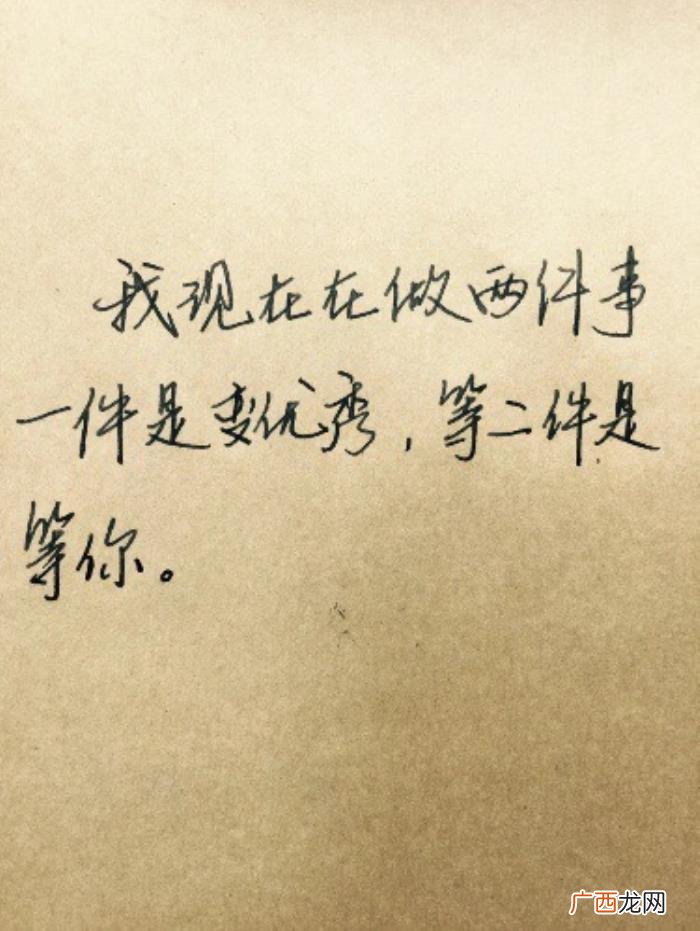 我现在在做两件事
一件是变优秀，等二件是
等你。
广西龙网